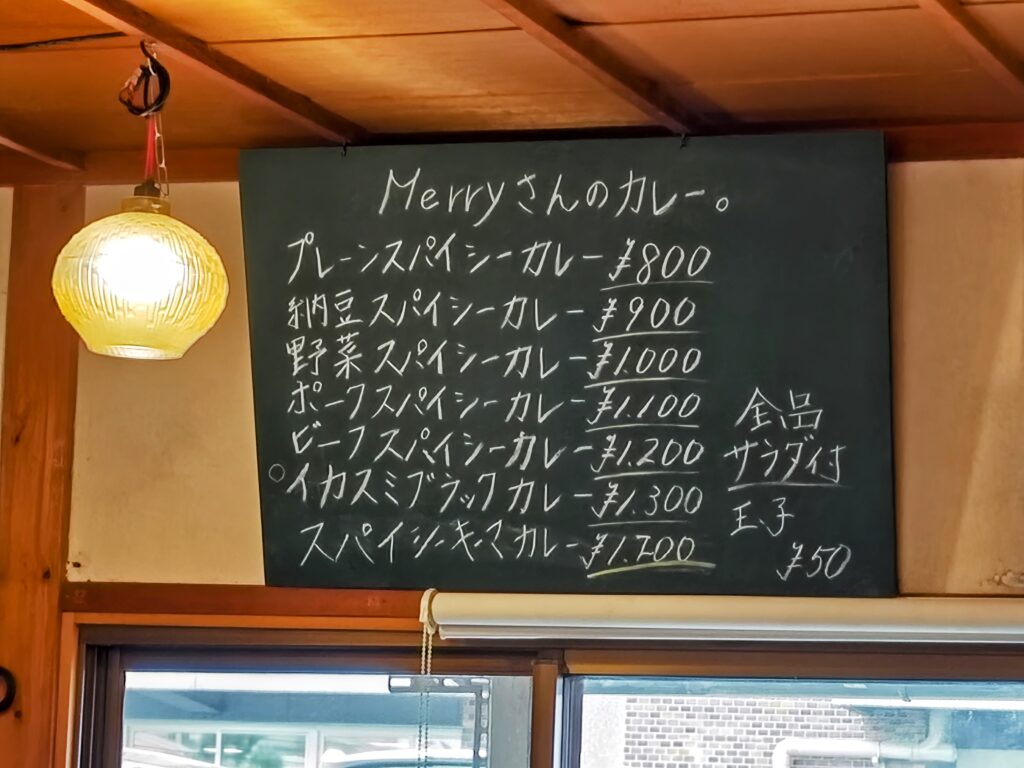 Merryさんのカレー。
プレーンスパイシーカレー ¥800
納豆スパイシーカレー ¥900
野菜スパイシーカレー ¥1.000
ポークスパイシーカレー ¥1.100
ビーフスパイシーカレー ¥1.200
○イカスミブラックカレー ¥1.300
スパイシーキーマカレー
全品
サラダ付
玉子
¥50